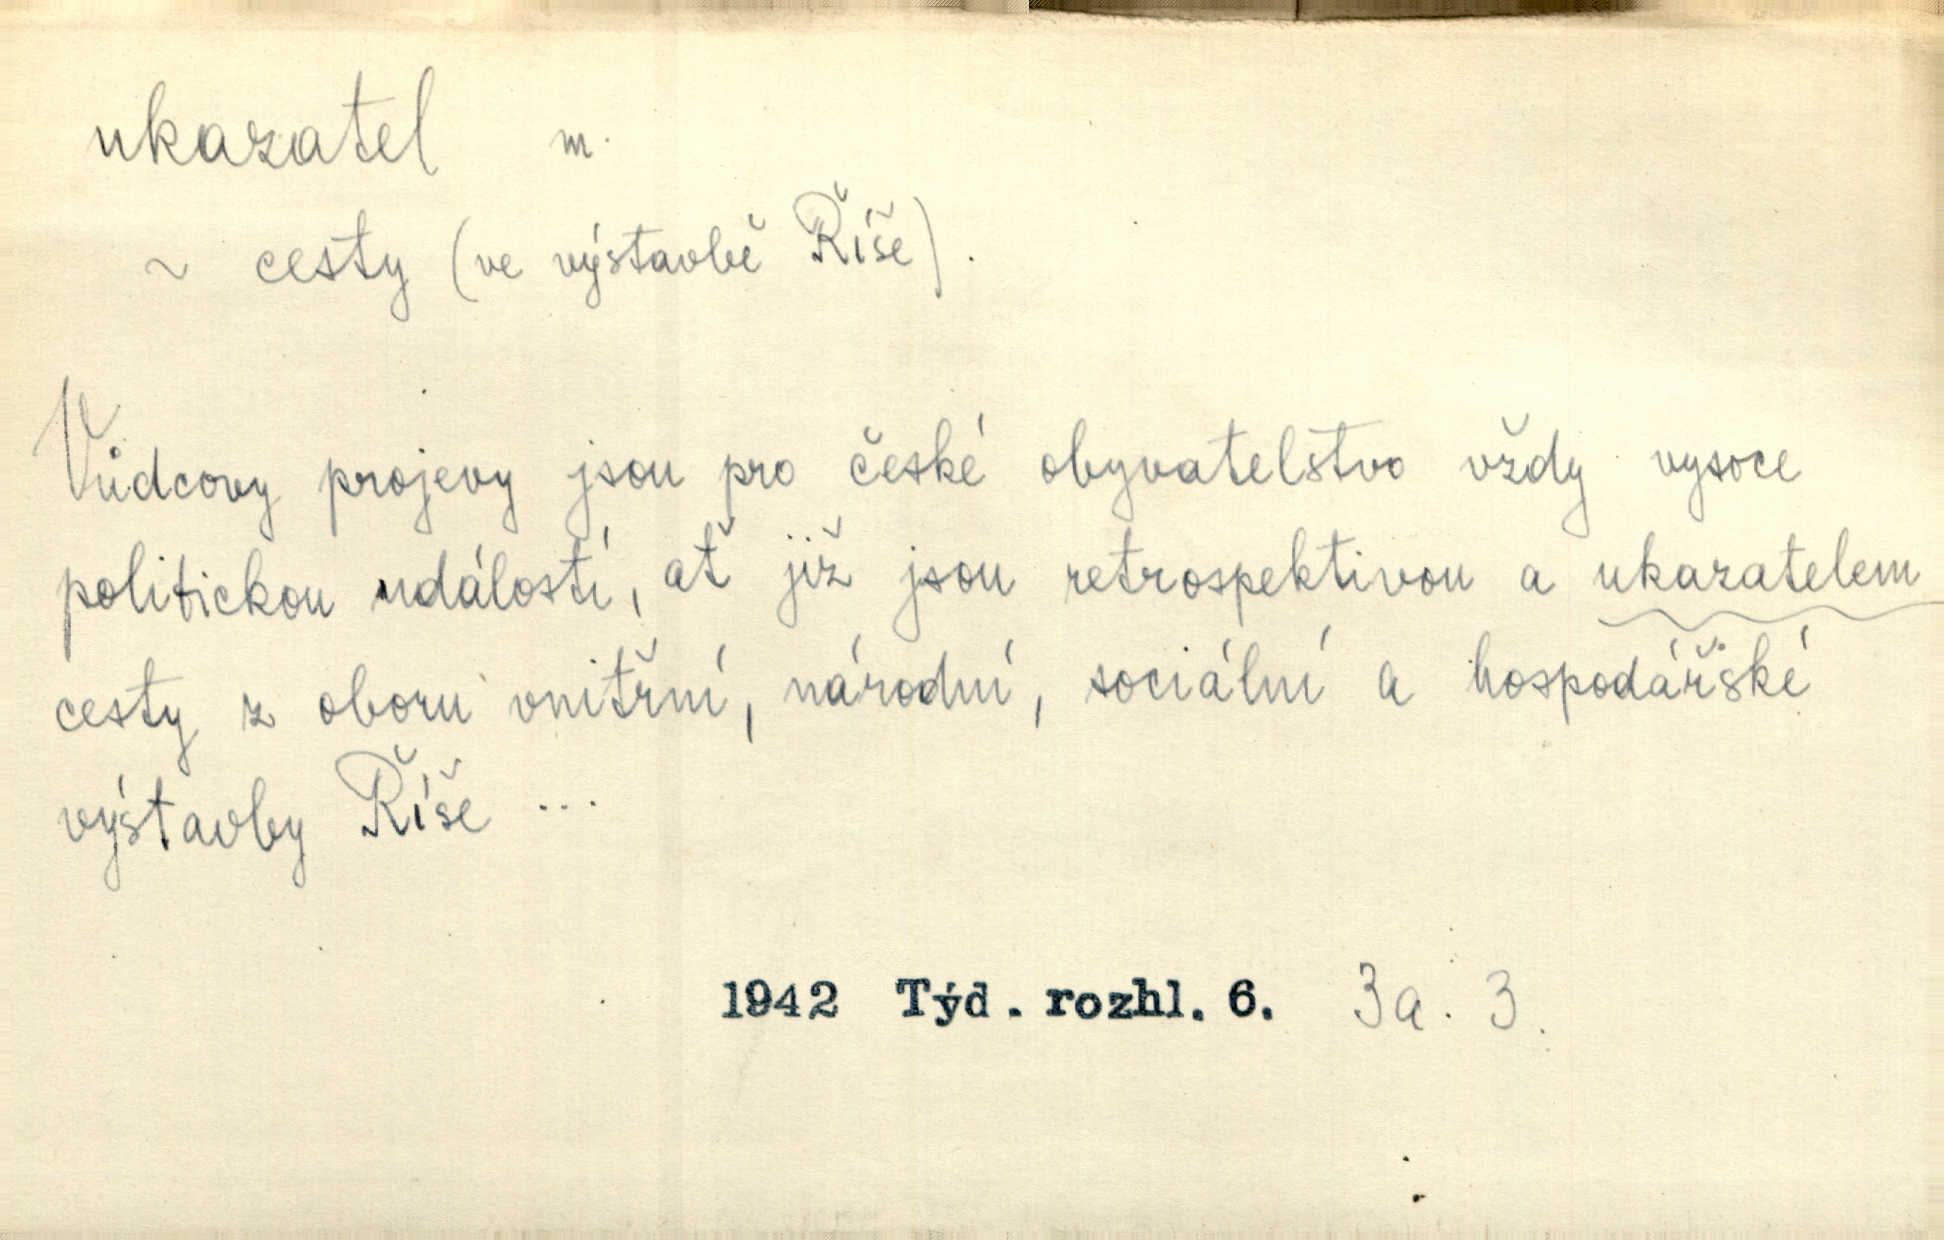 ukazatel m.
~ cesty (ve výstavbě Říše).
Vůdcovy projevy jsou pro české obyvatelstvo vždy vysoce
politickou událostí, ať již jsou retrospektivou a ukazatelem
cesty z oboru vnitřní, národní, sociální a hospodářské
výstavby Říše ...
1942 Týd. rozhl. 6. 3a. 3.